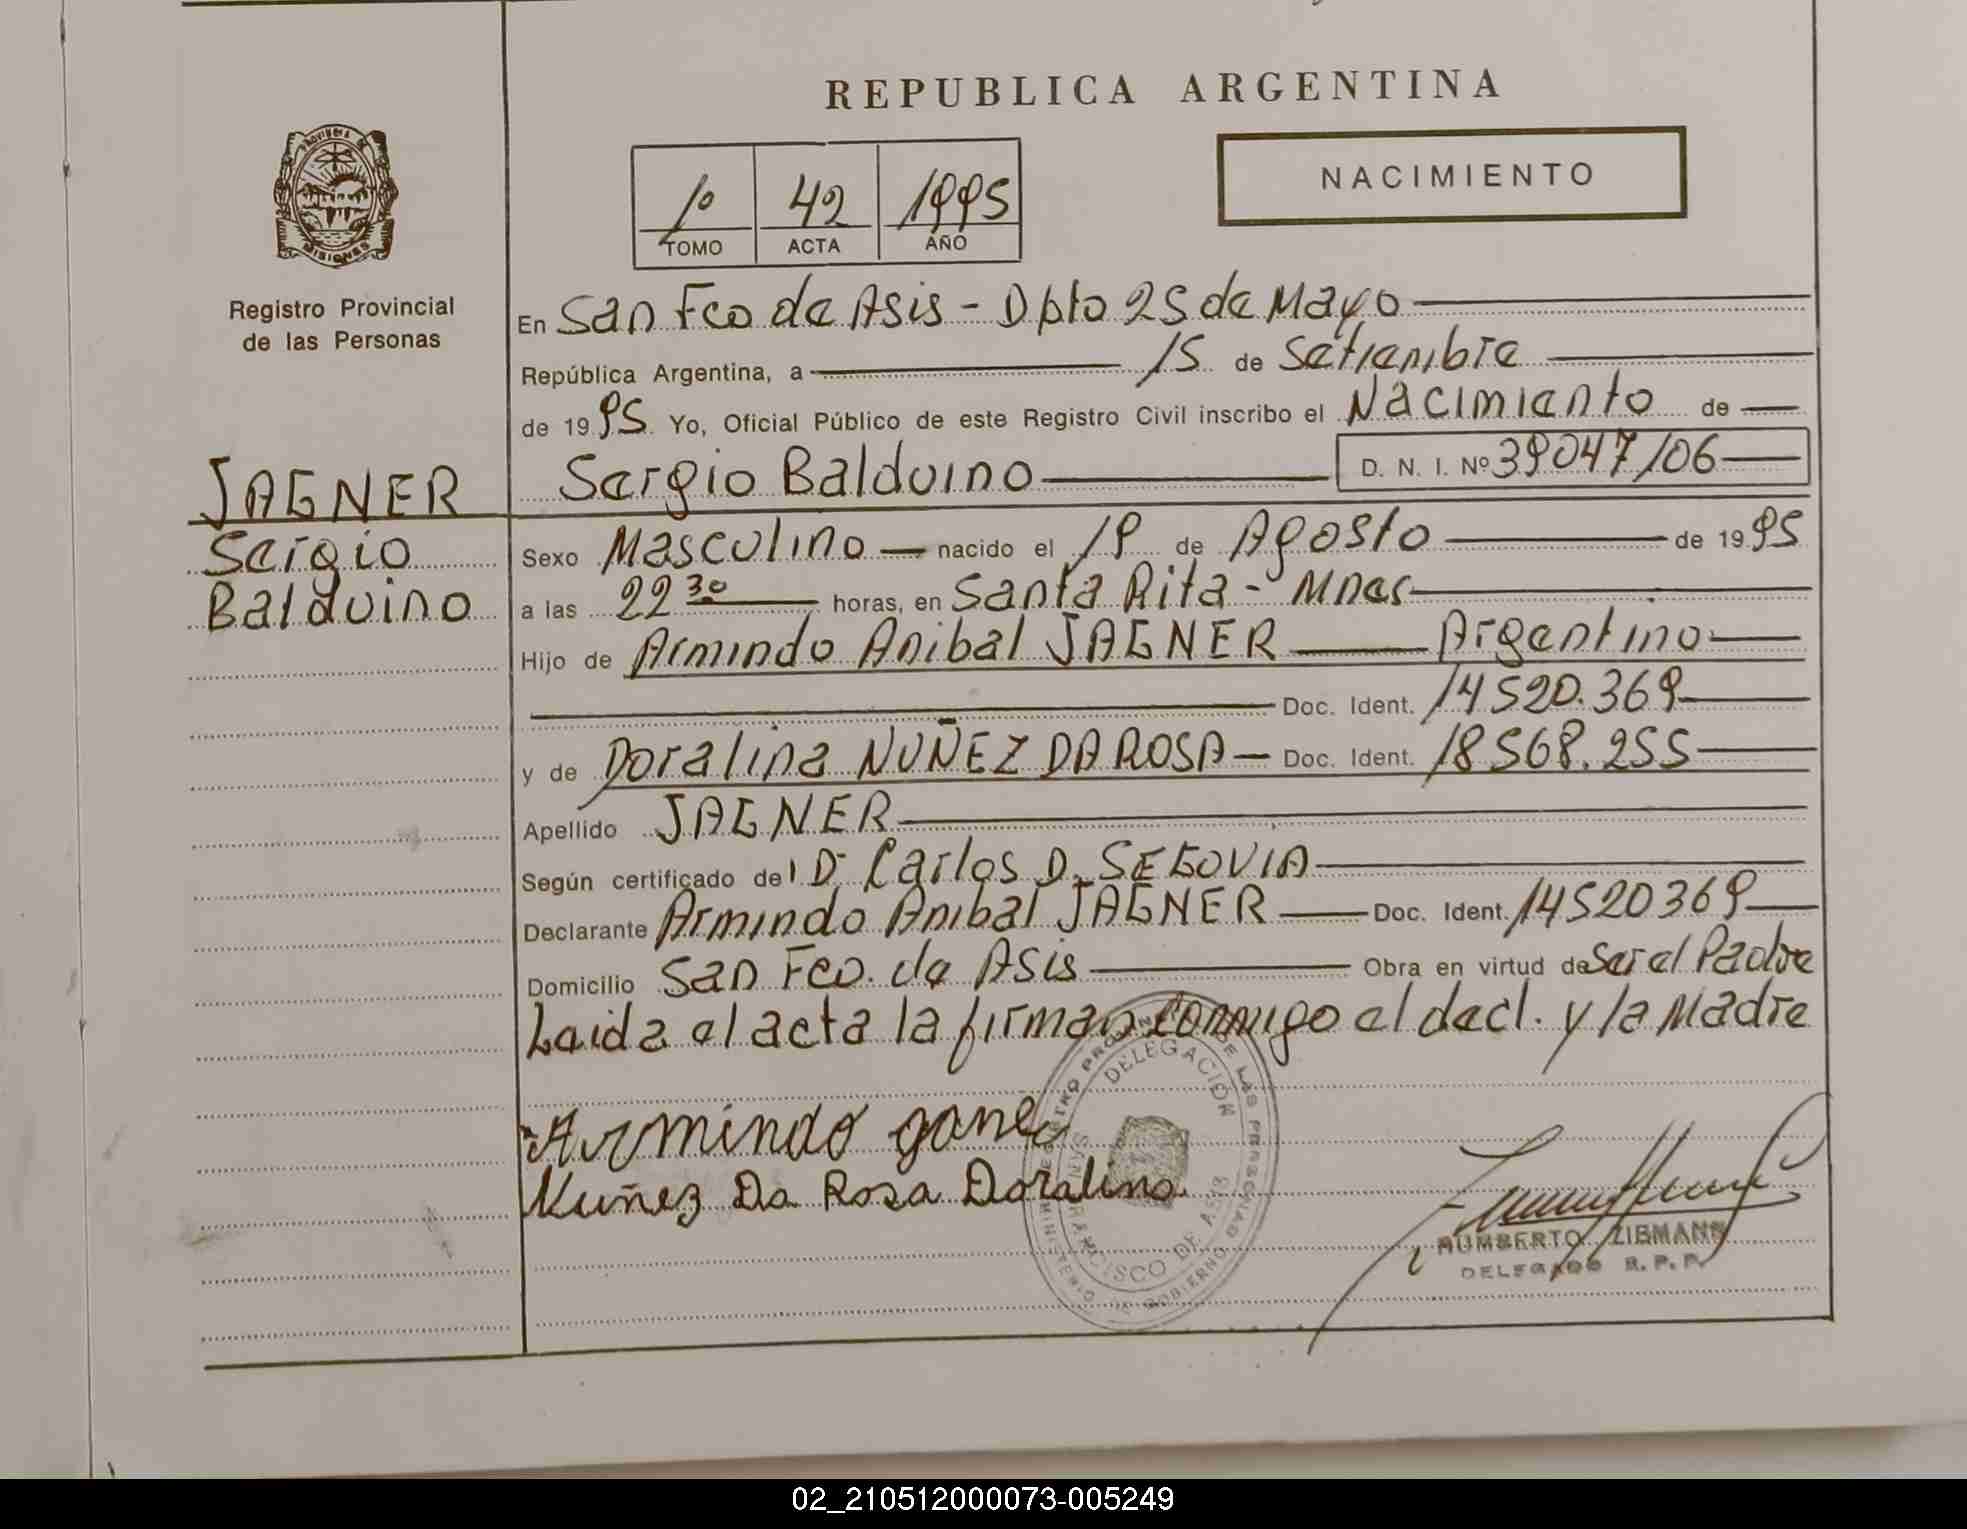 REPUBLICA ARGENTINA
PROVINCIA DE MISIONES
Registro Provincial
de las Personas
1º 42 1995
TOMO ACTA AÑO
NACIMIENTO
En San Fco de Asis - Dpto 25 de Mayo
República Argentina, a 15 de Setiembre
de 1995 Yo, Oficial Público de este Registro Civil inscribo el Nacimiento de
JAGNER
Sergio
Balduino
Sergio Balduino D. N. I. Nº 39047106
Sexo Masculino nacido el 19 de Agosto de 1995
a las 22 30 horas, en Santa Rita - Mnes
Hijo de Armindo Anibal JAGNER Argentino
Doc. Ident. 14520.369
y de Doralina NUÑEZ DA ROSA Doc. Ident. 18568.255
Apellido JAGNER
Según certificado del Dr Carlos D. SEGOVIA
Declarante Armindo Anibal JAGNER Doc. Ident. 14520369
Domicilio San Fco. de Asis Obra en virtud de Ser el Padre
Leida el acta la firman conmigo el decl. y la Madre
Armindo
Nuñez Da Rosa Doralina
REGISTRO PROVINCIAL DE LAS PERSONAS
DELEGACION
SAN FRANCISCO DE ASIS
MINISTERIO DE GOBIERNO
HUMBERTO ZIBMANN
DELEGADO R. P. P.
02_210512000073-005249